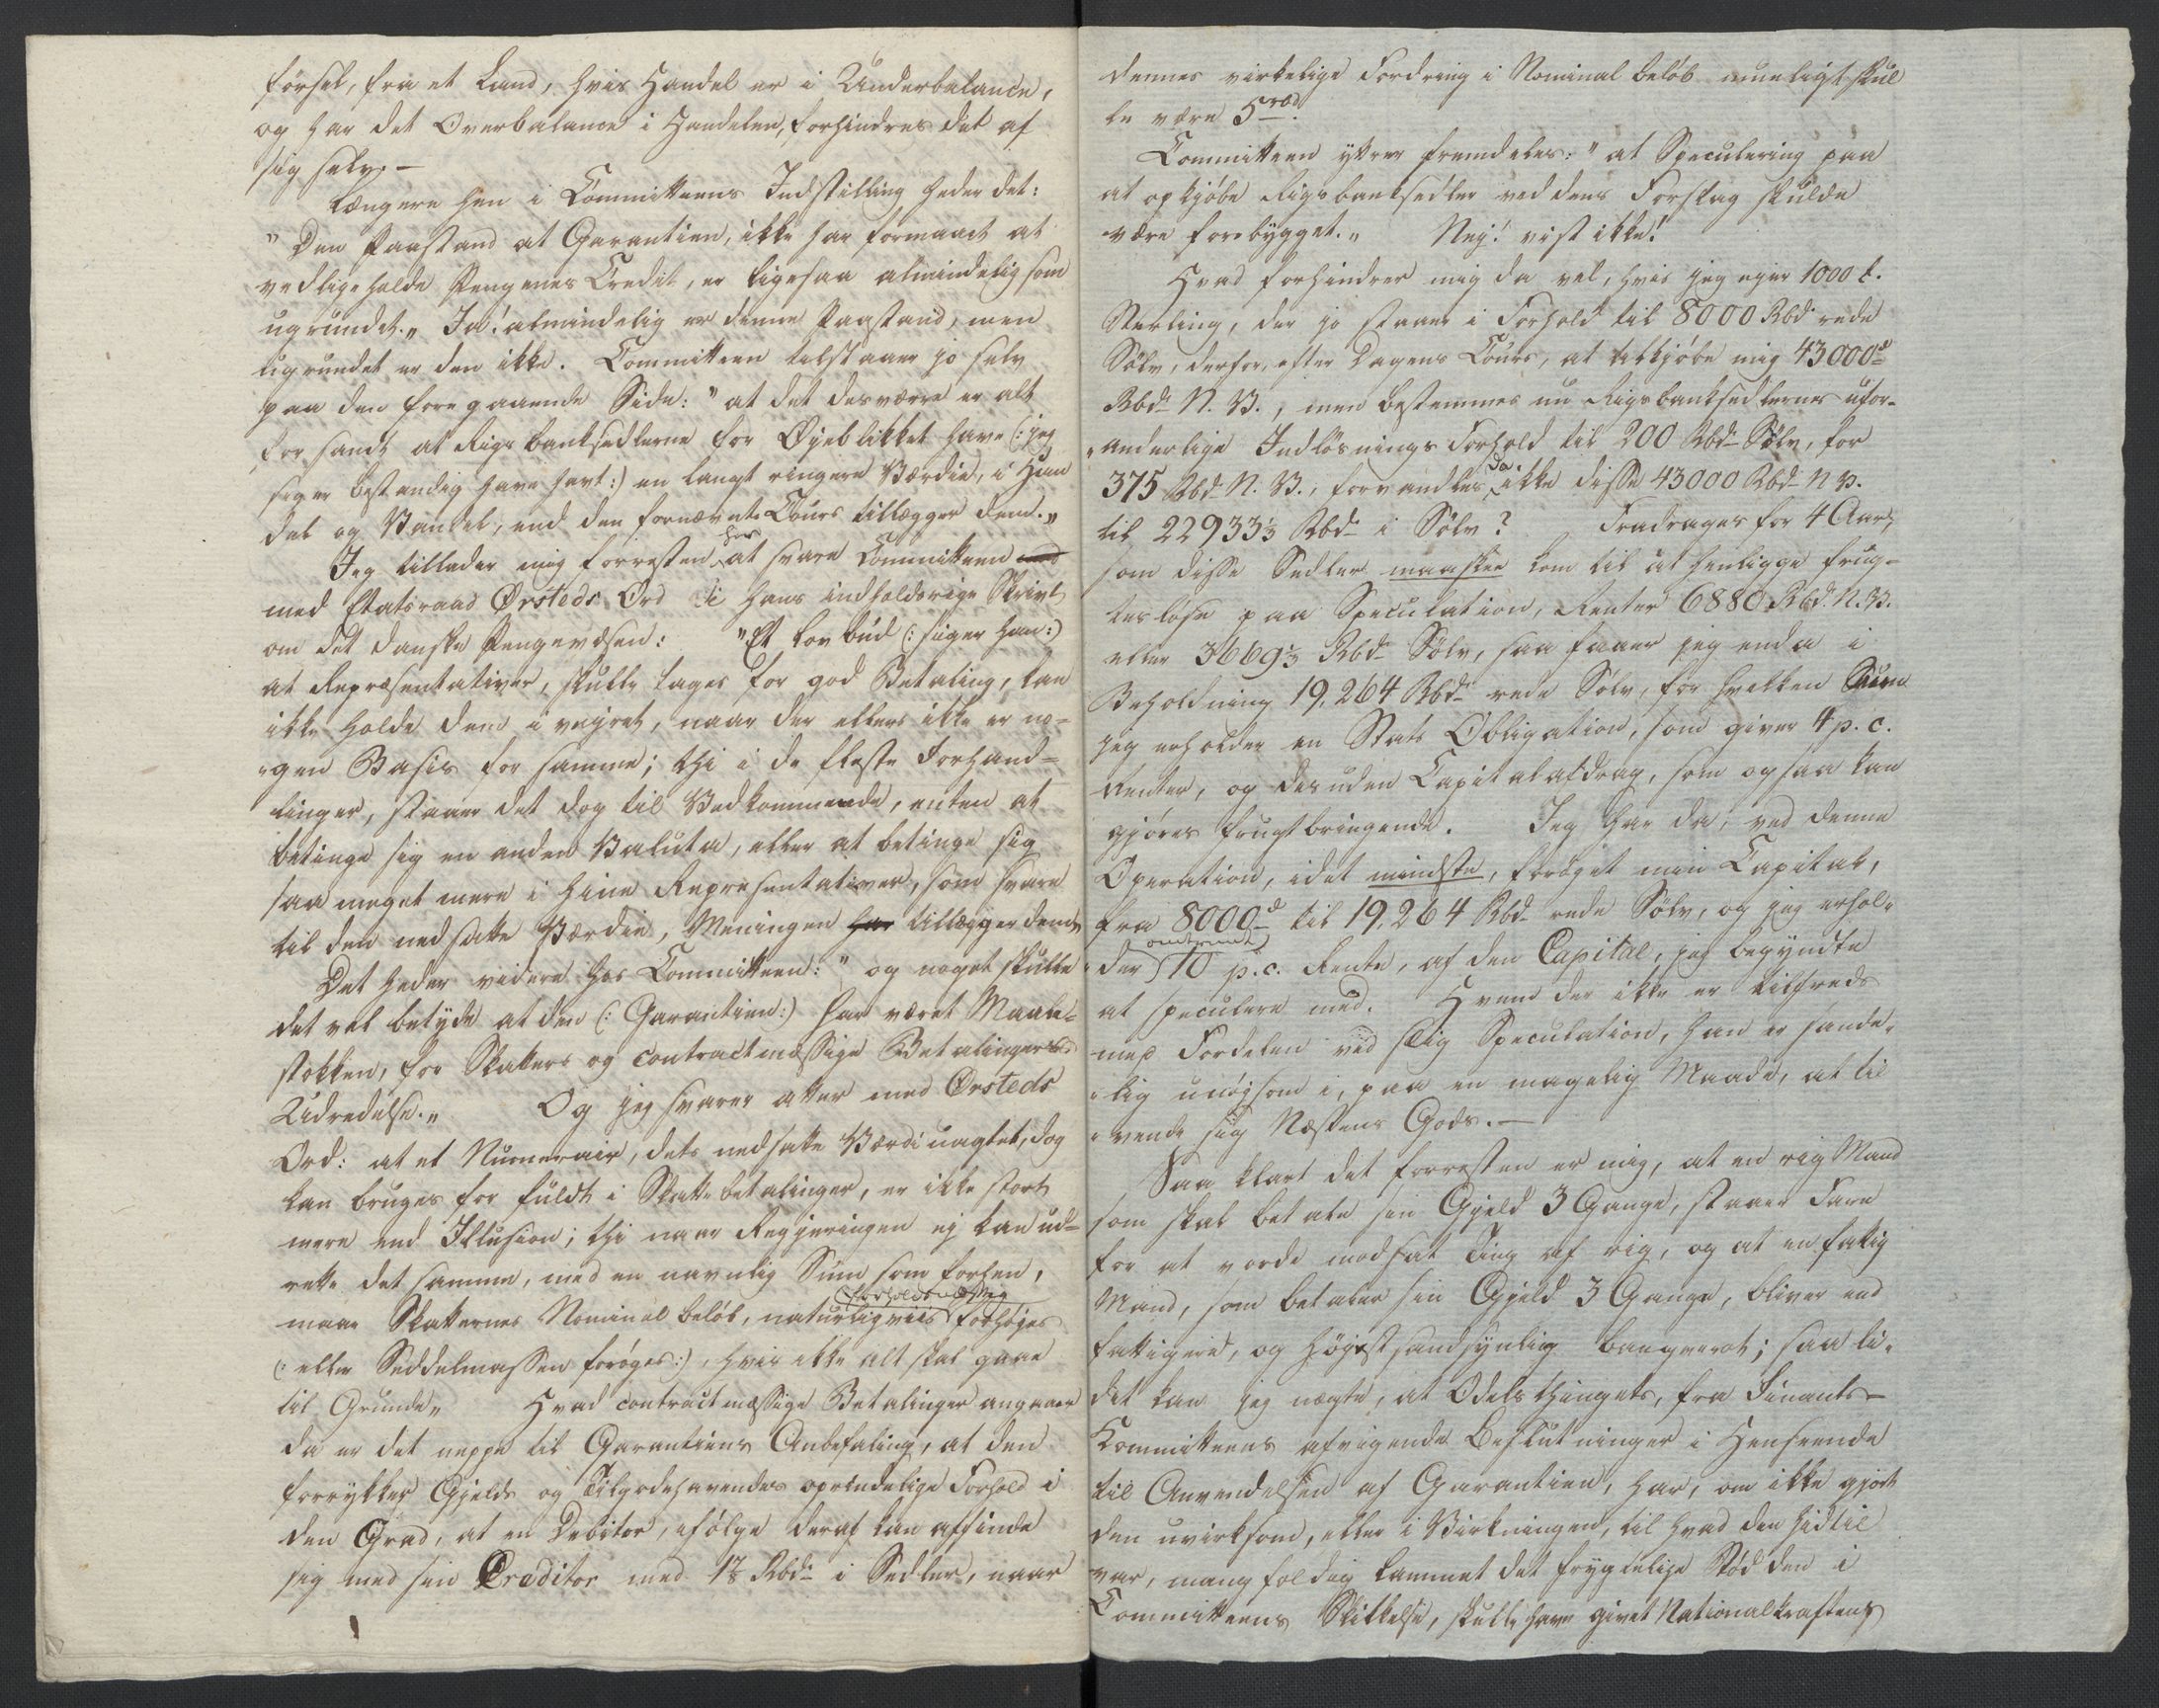 førsel, fra et Land, hvis Handel er i Underbalance,
og har det Overbalance i Handelen, forhindres det af
sig selv. —
Længere hen i Committeens Indstilling heder det:
"Den Paastand at Garantien, ikke har formaaet at
vedligeholde Pengenes Credit, er ligesaa almindelig som
ugrundet." Ja! almindelig er denne Paastand, men
ugrundet er den ikke. Committeen tilstaaer jo selv
paa den foregaaende Side: "at det desværre er alt
for sandt at Rigsbanksedlerne for Øjeblikket have (: jeg
siger bestandig have havt :) en langt ringere Værdie, i Han
del og Vandel, end den fornævnte Cours tillægger dem."
Jeg tillader mig forresten her at svare Committeen
med Etatsraad Ørsteds Ord i hans indholdsrige Skrivt
om det danske Pengevæsen: "Et Lovbud (: siger han :)
at Repræsentativer, skulle tages for god Betaling, kan
ikke holde dem i vejret, naar der ellers ikke er no-
gen Basis for samme; thi i de fleste Forhand-
linger, staaer det dog til Vedkommende, enten at
betinge sig en anden Valuta, eller at betinge sig
saa meget mere i hine Repræsentativer, som svare
til den nedsatte Værdie, Meningen har tillægger dem"
Det heder videre hos Committeen: "og noget skulle
det vel betyde at den (: Garantien :) har været Maale-
stokken, for Skatters og contractmæssige Betalingers
Udredelse." Og jeg svarer atter med Ørsteds
Ord: at et Numerair, dets nedsatte Værdi uagtet, dog
kan bruges for fuldt i Skattebetalinger, er ikke stort
mere end Illusion; thi naar Regjeringen ej kan ud-
rette det samme, med en navnlig Sum som forhen,
maae Skatternes Nominal beløb, naturligviis forholdsmæssig forhøjes
(: eller Seddelmassen forøges :), hvis ikke alt skal gaae
til Grunde" Hvad contractmæssige Betalinger angaaer
da er det neppe til Garantiens Anbefaling, at den
forrykker Gjelds og Tilgodehavendes oprindelige Forhold i
den Grad, at en Debitor, ifølge deraf kan affinde
sig med sin Creditor med 1⅞ Rbd. i Sedler, naar
dennes virkelige Fordring i Nominal beløb muligt skul
le være 5 rd.
Committeen yttrer fremdeles: "at Speculering paa
at opkjøbe Rigsbanksedler ved dens Forslag skulde
være forebygget." Nej! vist ikke!
Hvad forhindrer mig da vel, hvis jeg ejer 1000 £.
Sterling, der jo staaer i Forhold til 8000 Rbd. rede
Sølv, derfor, efter Dagens Cours, at tilkjøbe mig 43000
Rbd. N. V., men bestemmes nu Rigsbanksedlernes ufor-
anderlige Indløsnings Forhold til 200 Rbd. Sølv, for
375 Rbd. N. V., forvandles da ikke disse 43000 Rbd. N V.
til 22933⅓ Rbd. i Sølv? Fradrages for 4 Aar,
som disse Sedler maaskee kom til at henligge frug-
tesløse paa Speculation, Renter 6880 Rbd. N. V.
eller 3669⅓ Rbd. Sølv, saa faaer jeg enda i
Beholdning 19,264 Rbd. rede Sølv, for hvilken Sum
jeg erholder en Stats Obligation, som giver 4 p. c.
Renter, og desuden Capitalafdrag, som ogsaa kan
gjøres frugtbringende. Jeg har da, ved denne
Operation, idet mindste, forøget min Capital,
fra 8000 til 19,264 Rbd. rede Sølv, og jeg erhol-
der omtrent 10 p. c. Rente, af den Capital, jeg begyndte
at speculere med. Hvem der ikke er tilfreds
med Fordelen ved slig Speculation, han er sande-
lig unøjsom i, paa en magelig Maade, at til
vende sig Næstens Gods. —
Saa klart det forresten er mig, at en rig Mand
som skal betale sin Gjeld 3 Gange, staaer Fare
for at vorde modsat Ting af rig, og at en fattig
Mand, som betaler sin Gjeld 3 Gange, bliver end
fattigere, og højst sandsynlig banquerot; saa li-
det kan jeg nægte, at Odelsthingets, fra Finants-
Kommitteens afvigende Beslutninger i Henseende
til Anvendelsen af Garantien, har, om ikke gjort
den uvirksom, eller i Virkningen, til hvad den hidtil
var, mangfoldig lammet det frygtelige Stød den i
Committeens Skikkelse, skulle have givet Nationalkraftens